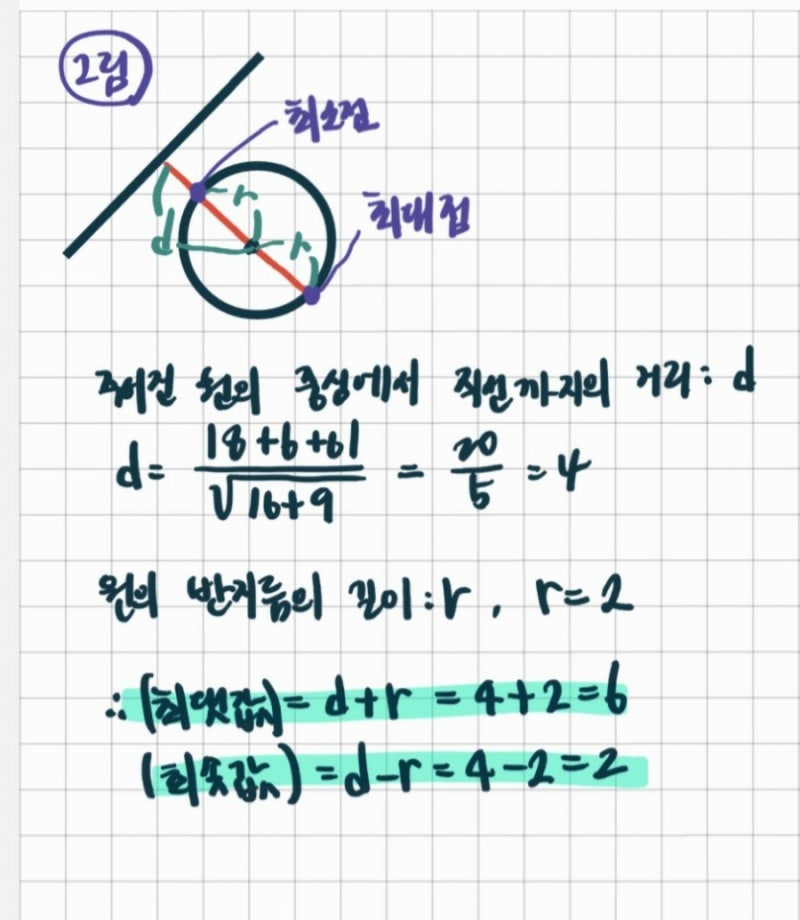 그림
최소점
r
최대점
d
r
주어진 원의 중심에서 직선까지의 거리: d
d = |8+6+6| / √16+9 = 20/5 = 4
원의 반지름의 길이: r, r = 2
∴ (최댓값) = d+r = 4+2 = 6
(최솟값) = d-r = 4-2 = 2